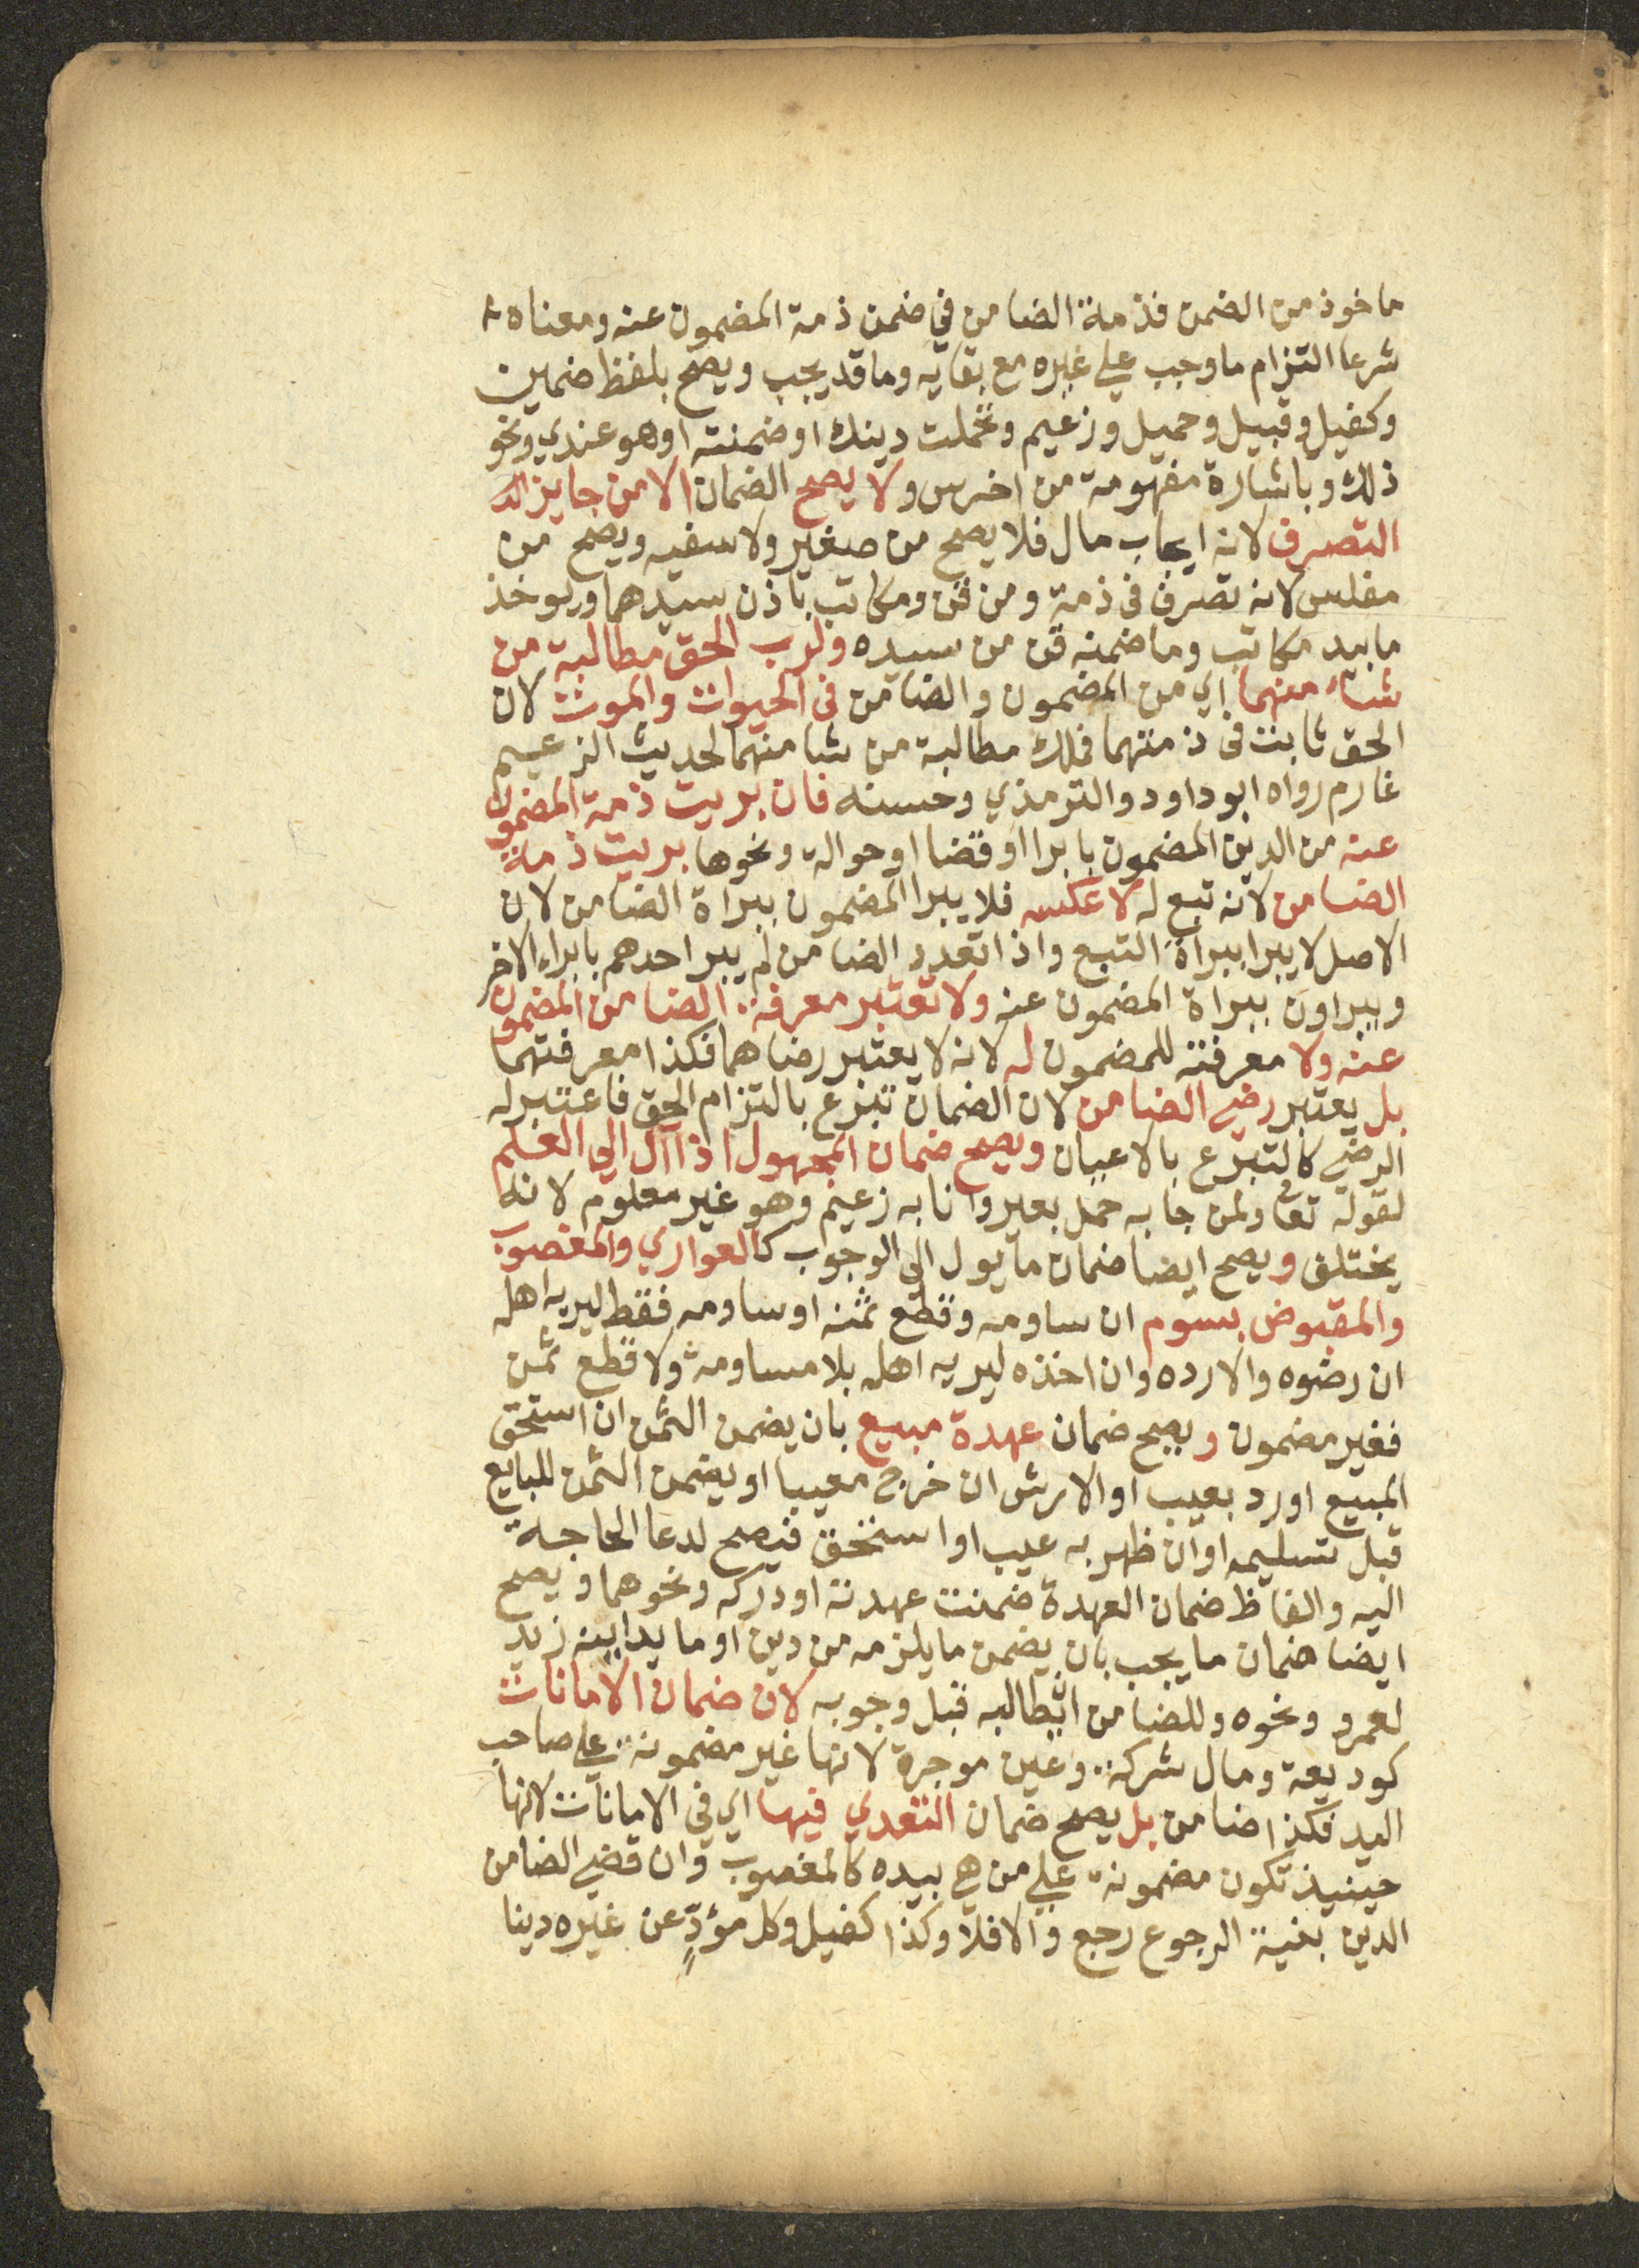 ماخوذ من الضمن فذمة الضامن في ضمن ذمة المضمون عنه ومعناه
شرعا التزام ما وجب علي غيره مع بقايه وما قد يجب ويصح بلفظ ضمين
وكفيل وقبيل وحميل وزعيم وتحملت دينك او ضمنته او هو عندي ونحو
ذلك وباشارة مفهومة من اخرس ولا يصح الضمان الا من جايز
التصرف لانه ايجاب مال فلا يصح من صغير ولا سفيه ويصح من
مفلس لانه تصرف في ذمة ومن قن ومكاتب باذن سيدهما ويوخذ
مابيد مكاتب وما ضمنه قن من سيده ولرب الحق مطالبة من
شاء منهما اي من المضمون والضامن في الحيوات والموت لان
الحق ثابت في ذمتهما فملك مطالبة من شا منهما لحديث الزعيم
غارم رواه ابو داود والترمذي وحسنه فان بريت ذمة المضمون
عنه من الدين المضمون بابرا او قضا او حوالة ونحوها بريت ذمة
الضامن لانه تبع له لا عكسه فلا يبرا المضمون ببراة الضامن لان
الاصل لا يبرا ببراة التبع واذا تعدد الضامن لم يبر احدهم بابراء الاخر
ويبراون ببراة المضمون عنه ولا تعتبر معرفة الضامن المضمون
عنه ولا معرفته للمضمون له لانه لا يعتبر رضاهما فكذا معرفتهما
بل يعتبر رضي الضامن لان الضمان تبرع بالتزام الحق فاعتبر له
الرضي كالتبرع بالاعيان ويصح ضمان المجهول اذا آل الي العلم
لقوله تعا ولمن جا به حمل بعير وانا به زعيم وهو غير معلوم لانه
يختلف ويصح ايضا ضمان ما يول الي الوجوب كالعواري والمغصوب
والمقبوض بسوم ان ساومه وقطع ثمنه او ساومه فقط ليريه اهله
ان رضوه والا رده وان اخذه ليريه اهله بلا مساومة ولا قطع ثمن
فغير مضمون ويصح ضمان عهدة مبيع بان يضمن الثمن ان استحق
المبيع اورد بعيب او الارش ان خرج معيبا او يضمن الثمن للبايع
قبل تسليمه او ان ظهر به عيب او استحق فيصح لدعا الحاجة
اليه والفاظ ضمان العهدة ضمنت عهدته او دركه ونحوهما ويصح
ايضا ضمان ما يجب بان يضمن ما يلزمه من دين او ما يداينه زيد
لعمرو ونحوه وللضامن ابطاله قبل وجوبه لان ضمان الامانات
كوديعة ومال شركة وعين موجرة لانها غير مضمونة علي صاحب
اليد فكذا ضامن بل يصح ضمان التعدي فيها اي في الامانات لانها
حينيذ تكون مضمونة علي من هي بيده كالمغصوب وان قضي الضامن
الدين بنية الرجوع رجع والا فلا وكذا كفيل وكل مؤدٍّ عن غيره دينا